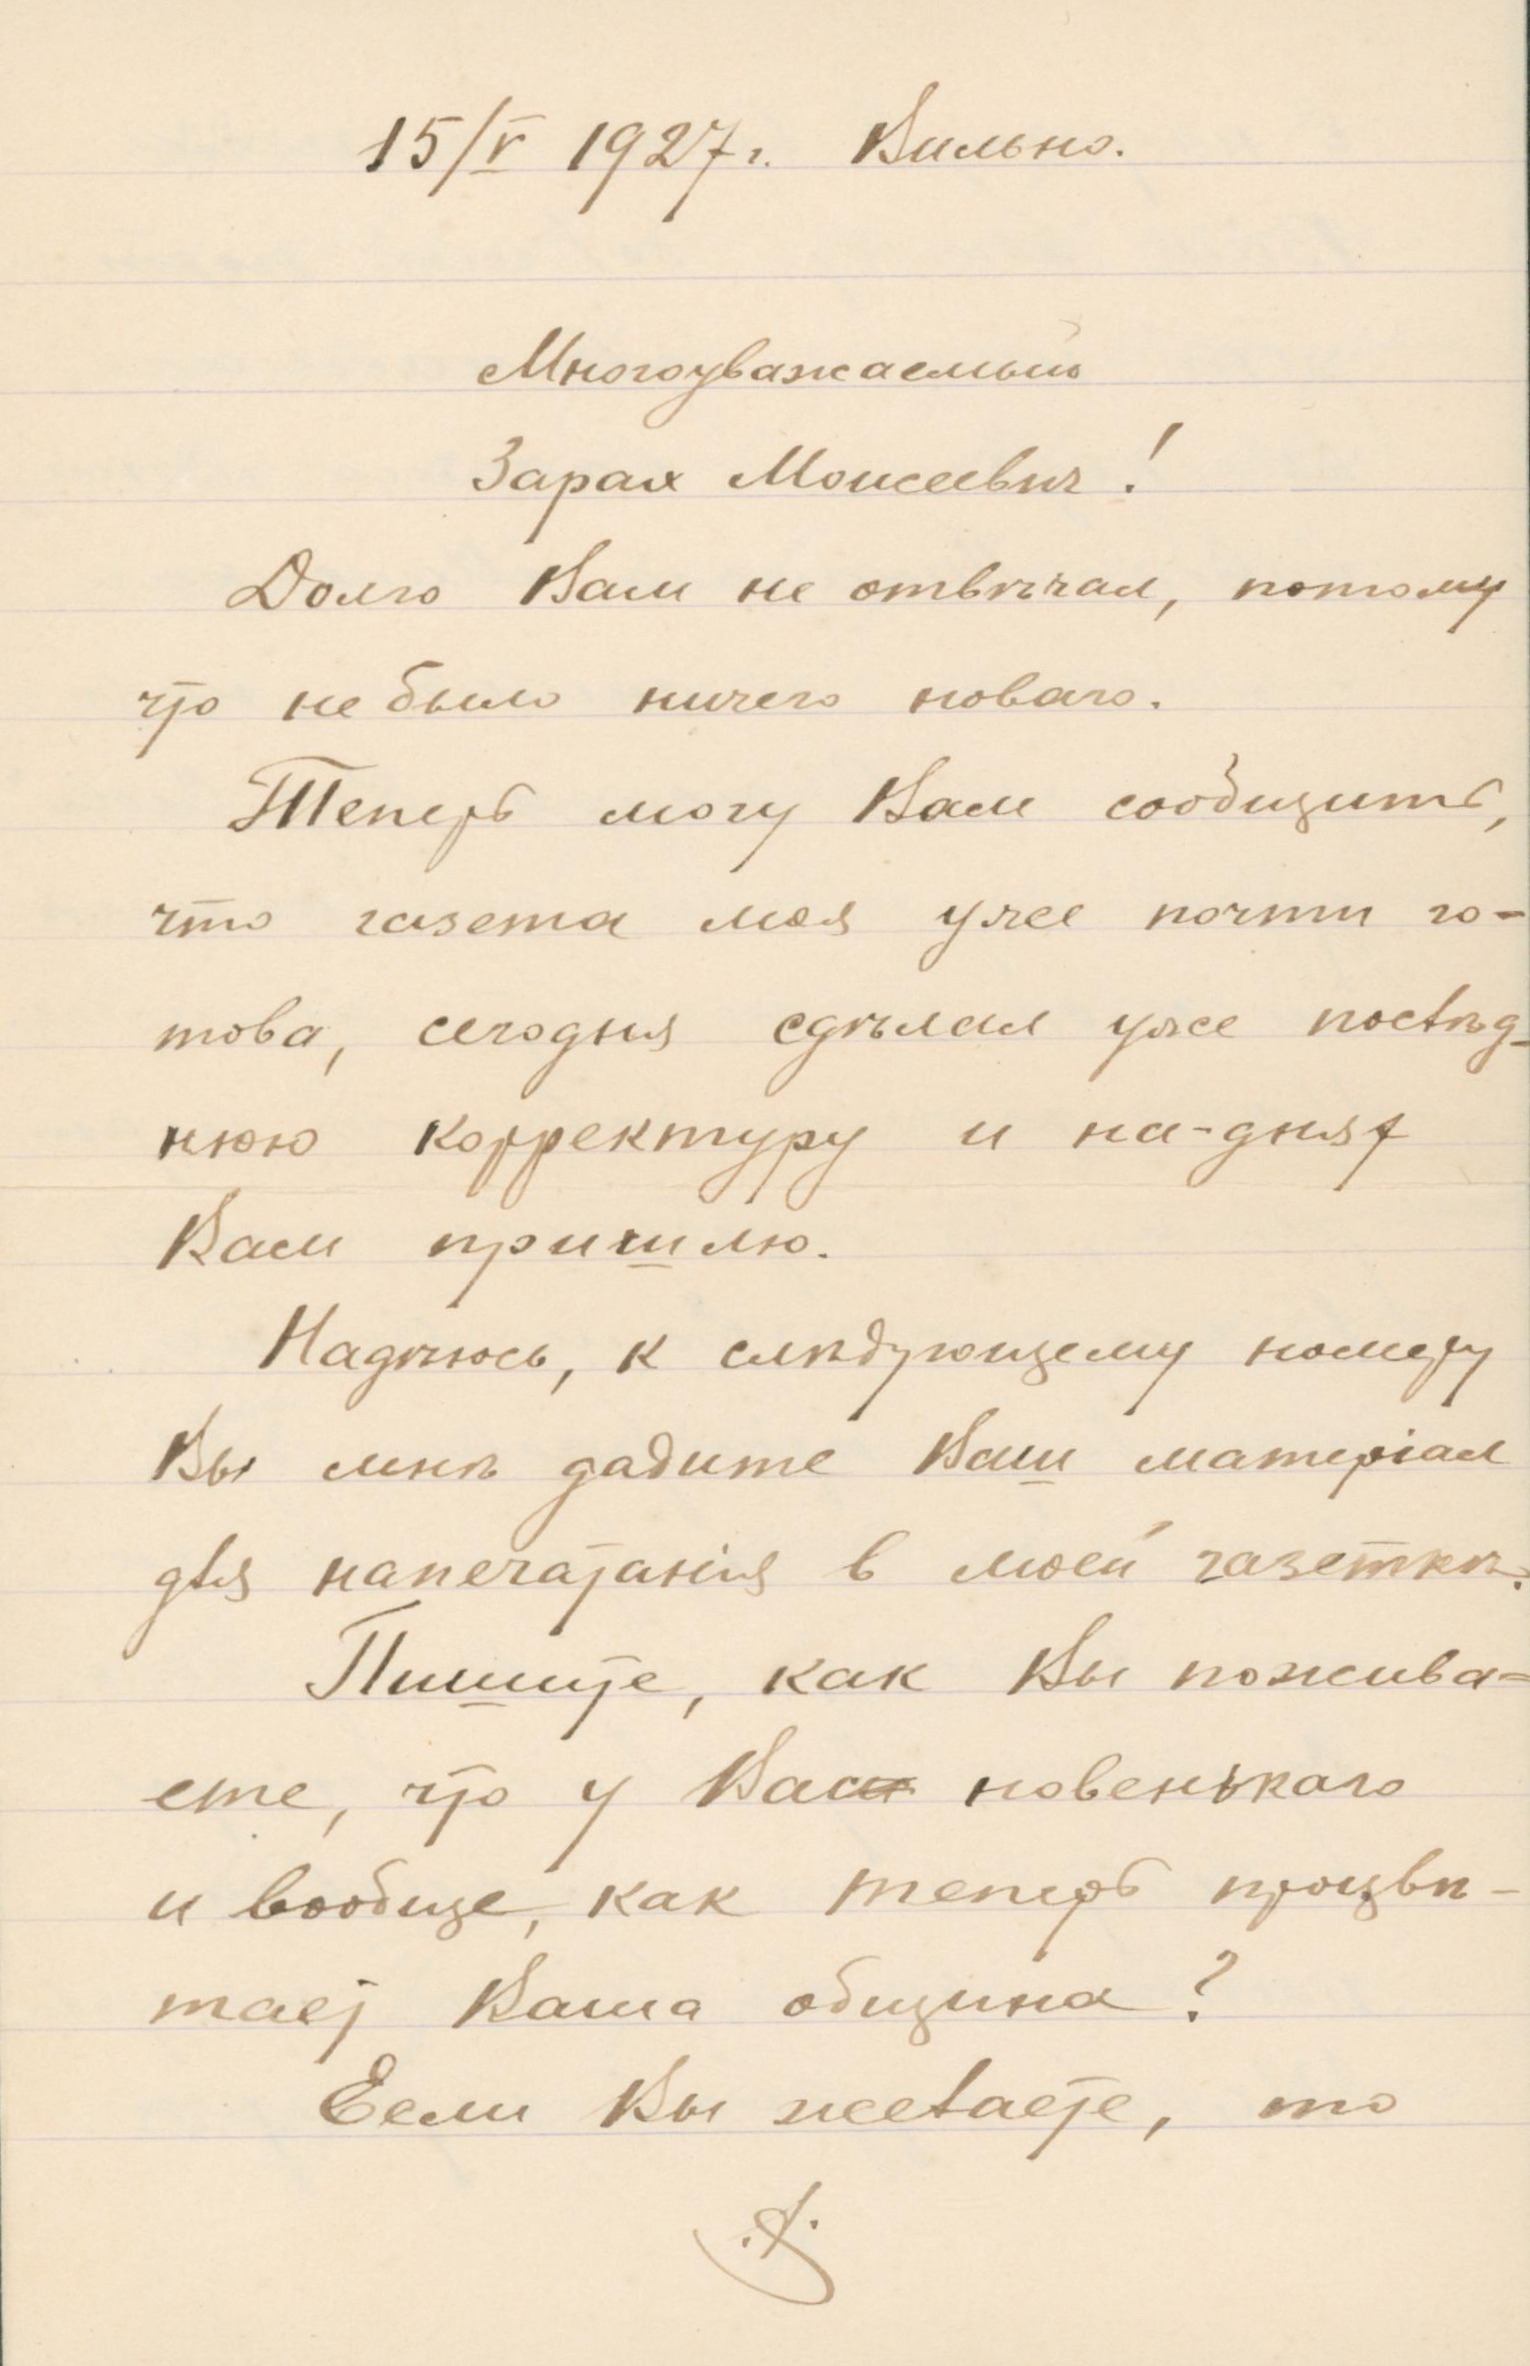 15/V 1927 г. Вильно.
Многоуважаемый
Зарах Моисеевич!
Долго Вам не отвѣчал, потому
что не было ничего новаго.
Теперь могу Вам сообщить,
что газета моя уже почти го-
това, сегодня сдѣлал уже послѣд-
нюю корректуру и на-днях
Вам пришлю.
Надѣюсь, к слѣдующему номеру
Вы мнѣ дадите Ваш матеріал
для напечатанія в моей газеткѣ.
Пишите, как Вы пожива=
ете, что у Вас новенькаго
и вообще, как теперь процвѣ-
тает Ваша община?
Если Вы желаете, то